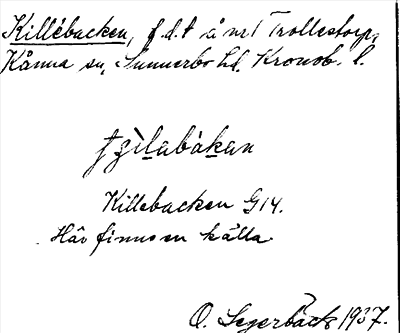 Killebacken, f.d.t å nr 1 Trollestorp,
Kånna sn, Sunnerbo hd. Kronob. l.
Killebacken G14.
Här finns en källa
O. Segerbäck 1937.